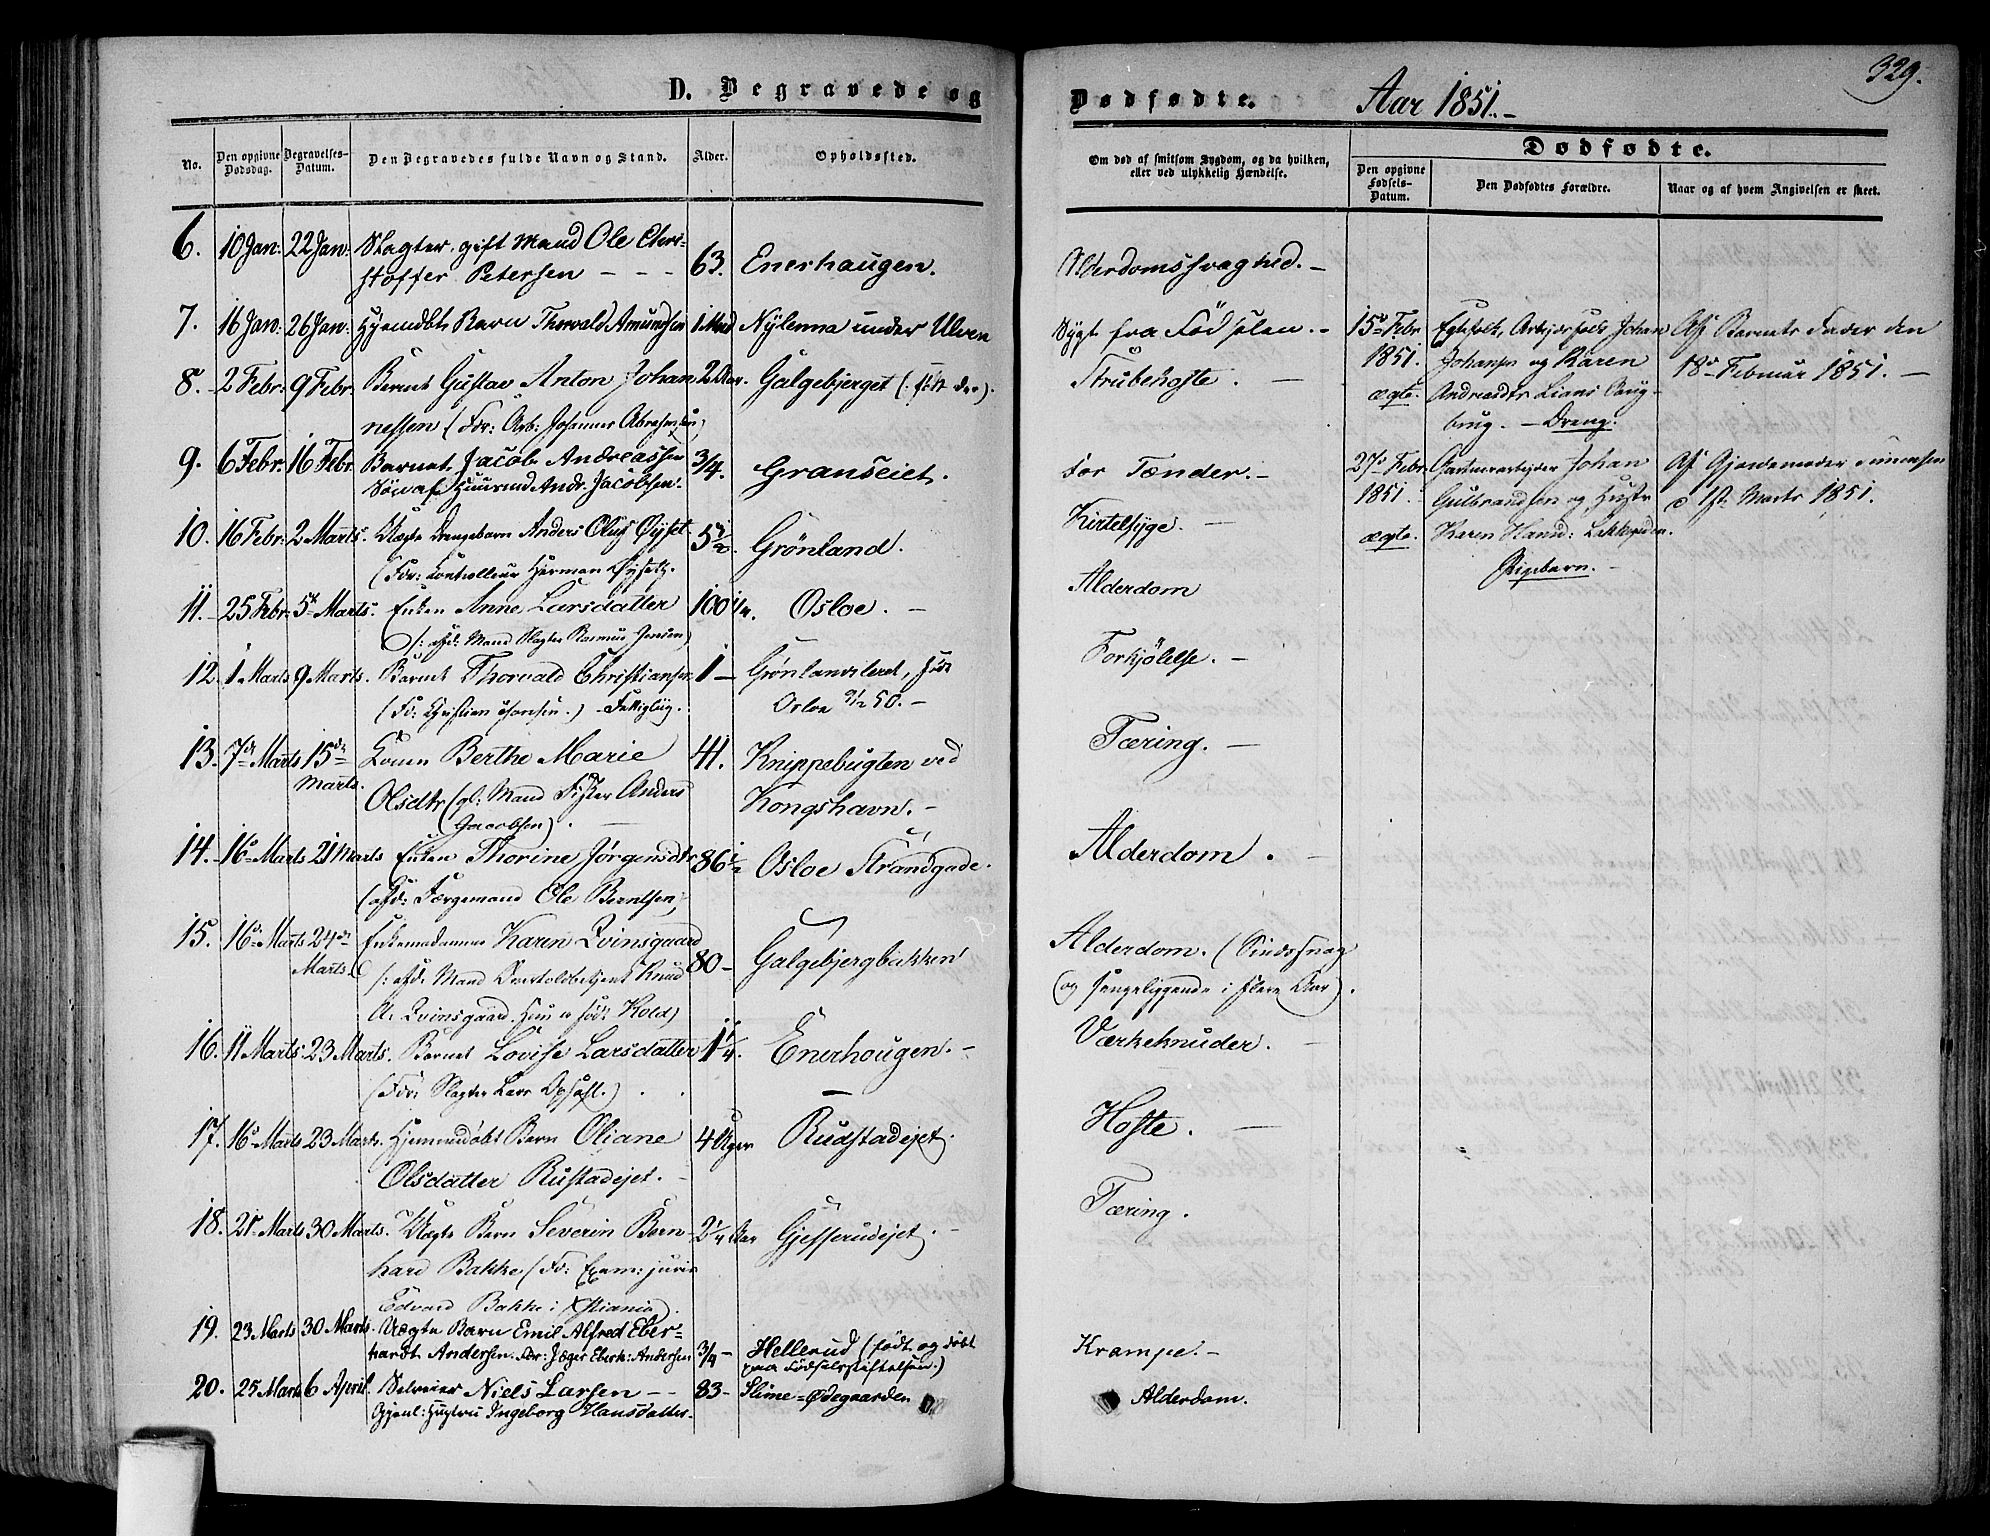 D. Begravede og
Dødfødte. Aar 1851.-
329.
No. Den opgivne Dødsdag. Begravelses-Datum. Den Begravedes fulde Navn og Stand. Alder. Opholdssted.
Om død af smitsom Sygdom, og da hvilken, eller ved ulykkelig Hændelse.
Dødfødte.
Den opgivne Fødsels-Datum. Den Dødfødtes Forældre. Naar og af hvem Angivelsen er skeet.
6. 10 Jan: 22 Jan: Slagter, gift Mand Ole Chri-
stoffer Petersen - - - 63. Enerhaugen. Alderdomssvaghed. -
7. 16 Jan: 26 Jan: Hjemdbt Barn Thorvald Amundsen 1 Mnd Nylenna under Ulven Sygt fra Fødselen. -
8. 2 Febr. 9 Febr. Barnet Gustav Anton Johan- 2 Galgebjerget (: født der). Strubehoste. -
nessen (Fdr: Arb: Johannes Abrahamsen)
9. 6 Febr. 16 Febr. Barnet Jacob Andreassen 3/4. Granseiet. For Tænder. -
Søn af Huusmd Andr. Jacobsen.
10. 16 Febr. 2 Marts. Uægte Drengebarn Anders Oluf Øyset- 5 1/2. Grønland. Kirtelsyge. -
(Fdr: Controlleur Herman Øysetz.
11. 25 Febr. 5te Marts. Enken Anne Larsdatter 100 Osloe. - Alderdom
/: afd: Mand Slagter Rasmus Jensen)
12. 1 Marts 9 Marts. Barnet Thorvald Christiansen 1 - Grønlandsleret, født Forkjølelse. -
(Fdr: Christian Thomsen.) Fattiglig. Osloe 50. -
13. 7de Marts 15de Marts. Konen Berthe Marie 41. Knippebugten ved Tæring. -
Olsdtr (gl: Mand Fisker Anders Kongshavn. -
Jacobsen).
14. 16 Marts 21 Marts Enken Thorine Jørgensdtr 86 1/2 Osloe Strandgade. Alderdom. -
(afd: Færgemand Ole Berntsen,
15. 16 Marts 24de Marts. Enkemadamme Karen Qvinsgaard 80 - Galgebjergbakken Alderdom. (Sindssvag
/: afd: Mand Knud og sengeliggende i flere Aar).
A. Qvinsgaard. Hun er født Kold)
16. 11 Marts 23 Marts. Barnet Lovise Larsdatter 1 1/4. Enerhougen. - Værkeknuder. -
(Fdr: Slagter Lars Opsahl.)
17. 16 Marts 23 Marts. Hjemmedøbt Barn Oliane 4 Uger Rudstadejet. Hoste. -
Olsdatter Rustadejet. -
18. 21 Marts 30 Marts. Uægte Barn Severin Bern- 2 1/4 Aar Gjesserudejet. - Tæring.
hard Bakke (Fdr: Exam: juris
Edvard Bakke i Xstiania).
19. 23 Marts 30 Marts. Uægte Barn Emil Alfred Eber- 3/4 - Hellerud (født og døbt Krampe. -
hardt Andersen. Fdr: Jæger Eberh: Andersen paa Fødselsstiftelsen.)
20. 25 Marts 6 April. Selveier Niels Larsen - - 83 - Slime-Ødegaarden Alderdom.
Gjenl: Hustru Ingeborg Hansdatter
15 Febr 1851. ægte. Egtefolk, Arbejdsfolk Johan
Johansen og Karen
Andreasdtr Lians
brug. - Dreng.
Af Barnets Fader den
18 Februar 1851. -
27 Febr. 1851. ægte. Gartnerarbejder Johan
Gulbrandsen og Hustr
Karen Hansd:
Pigebarn. -
Af Gjordemoder
d 1ste Marts 1851.